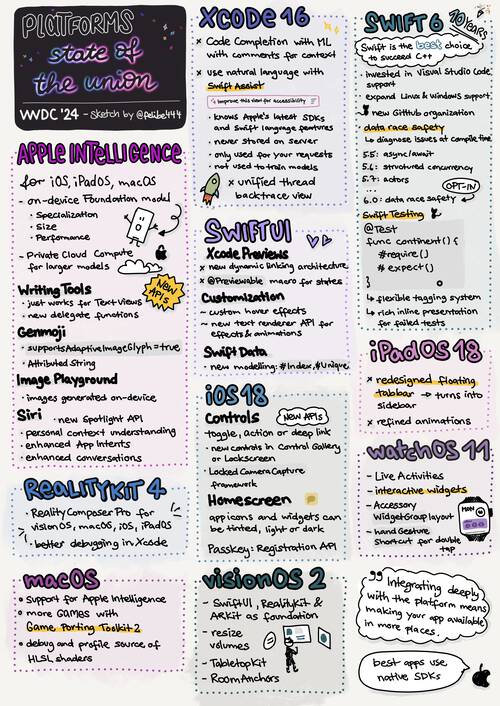 PLATFORMS
state of
the union
WWDC '24 - Sketch by @felibe444
APPLE INTELLIGENCE
for iOS, iPadOS, macOS
- on-device Foundation model
• Specialization
• Size
• Performance
~ Private Cloud Compute
for larger models
Writing Tools
• just works for Text-Views
• new delegate functions
NEW APIs
Genmoji
• supportsAdaptiveImageGlyph = true
• Attributed String
Image Playground
• images generated on-device
Siri • new Spotlight API
• personal context understanding
• enhanced App Intents
• enhanced conversations
REALITYKIT 4
• Reality Composer Pro for
visionOS, macOS, iOS, iPadOS
• better debugging in Xcode
macOS
• Support for Apple Intelligence
• more GAMES with
Game Porting Toolkit 2
• debug and profile source of
HLSL shaders
XCODE 16
x Code Completion with ML
with comments for context
x use natural language with
Swift Assist
Improve this view for accessibility
• knows Apple's latest SDKs
and Swift language features
• never stored on server
• only used for your requests
• not used to train models
x unified thread
backtrace view
SWIFTUI
Xcode Previews
x new dynamic linking architecture
x @Previewable macro for states
Customization
~ custom hover effects
~ new text renderer API for
effects & animations
Swift Data
- new modelling: #Index, #Unique
iOS 18
Controls
NEW APIs
toggle, action or deep link
• new controls in Control Gallery
or Lockscreen
• Locked Camera Capture
framework
Homescreen
app icons and widgets can
be tinted, light or dark
Passkey: Registration API
visionOS 2
- SwiftUI, RealityKit &
ARKit as foundation
- resize
volumes
- TabletopKit
- Room Anchors
SWIFT 6
10 YEARS
Swift is the best choice
to succeed C++
• invested in Visual Studio Code
support
• expand Linux & Windows support
new GitHub organization
data race safety
↳ diagnose issues at compile time
5.5: async/await
5.6: structured concurrency
5.7: actors
...
OPT-IN
6.0: data race safety
Swift Testing
@Test
func continent() {
#require()
#expect()
}
↳ flexible tagging system
↳ rich inline presentation
for failed tests
iPadOS 18
x redesigned floating
tabbar → turns into
sidebar
x refined animations
watchOS 11
- Live Activities
- interactive widgets
- Accessory
WidgetGroup layout
- hand Gesture
Shortcut for double
tap
" Integrating deeply
with the platform means
making your app available
in more places. "
best apps use
native SDKs